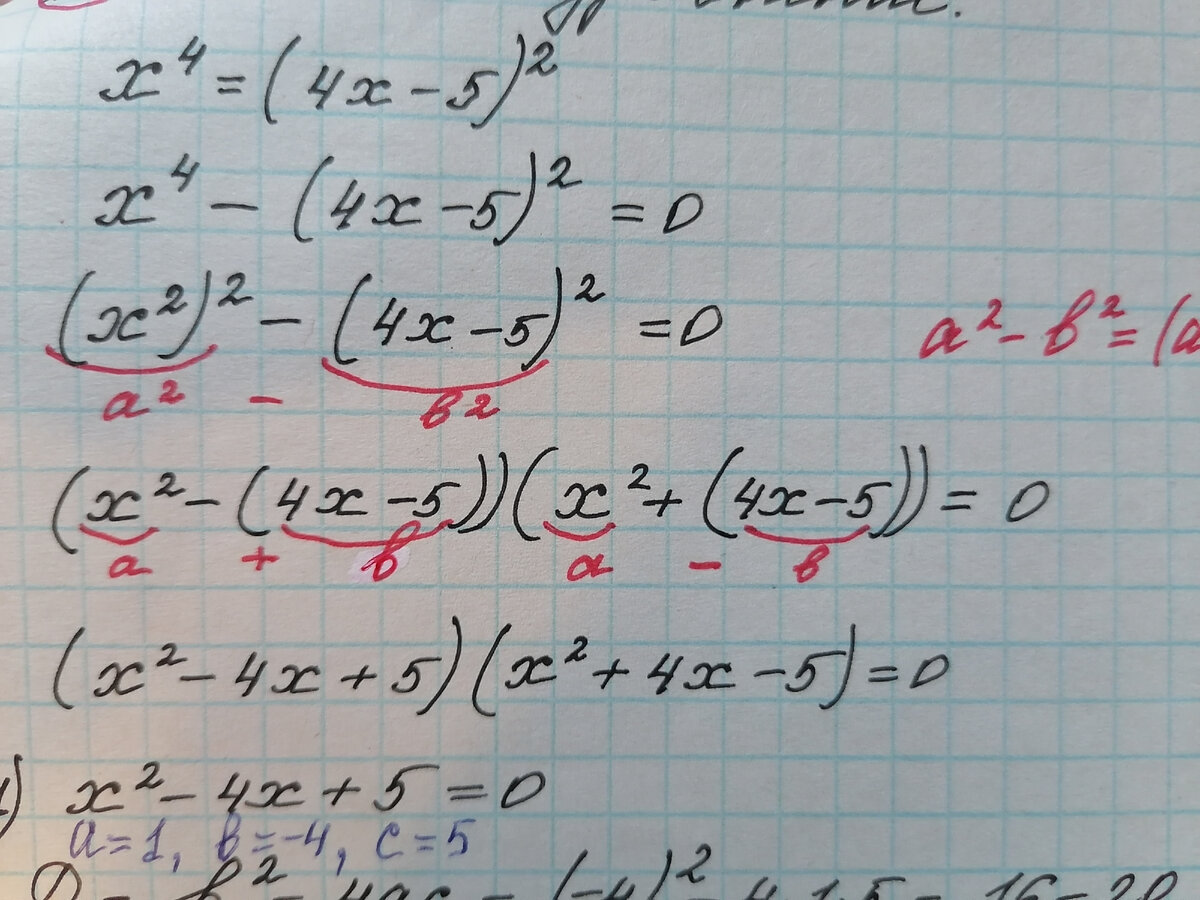 x⁴ = (4x - 5)²
x⁴ - (4x - 5)² = 0
(x²)² - (4x - 5)² = 0
a² - b² = (a
a² - b²
(x² - (4x - 5))(x² + (4x - 5)) = 0
a + b a - b
(x² - 4x + 5)(x² + 4x - 5) = 0
1) x² - 4x + 5 = 0
a = 1, b = -4, c = 5
D = b² - 4ac = (-4)² - 4·1·5 = 16 - 20